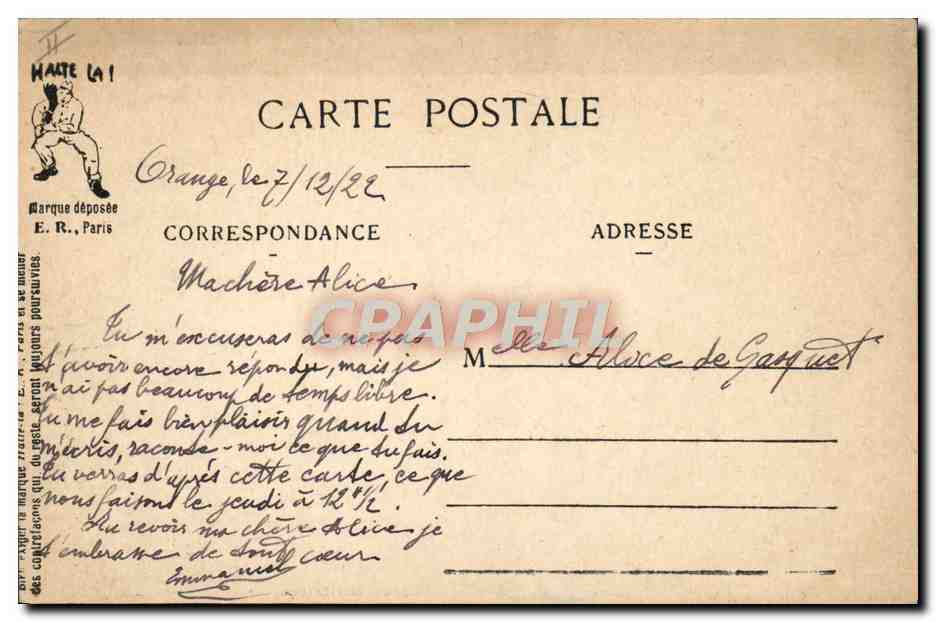 II
HALTE LA!
CARTE POSTALE
Orange, le 7/12/22
Marque déposée
E. R., Paris
CORRESPONDANCE
ADRESSE
Ma chère Alice
Tu m'excuseras de ne pas
t'avoir encore répondu, mais je
n'ai pas beaucoup de temps libre.
Tu me fais bien plaisir quand tu
m'écris, raconte-moi ce que tu fais.
Tu verras d'après cette carte, ce que
nous faisons le jeudi à 12 h 1/2.
Au revoir ma chère Alice je
t'embrasse de tout cœur
Emmanuel
Melle Alice de Gasquet
Exiger la marque Halte-là E. R. Paris et se méfier
des contrefaçons qui, du reste, seront toujours poursuivies.
CPAPHIL